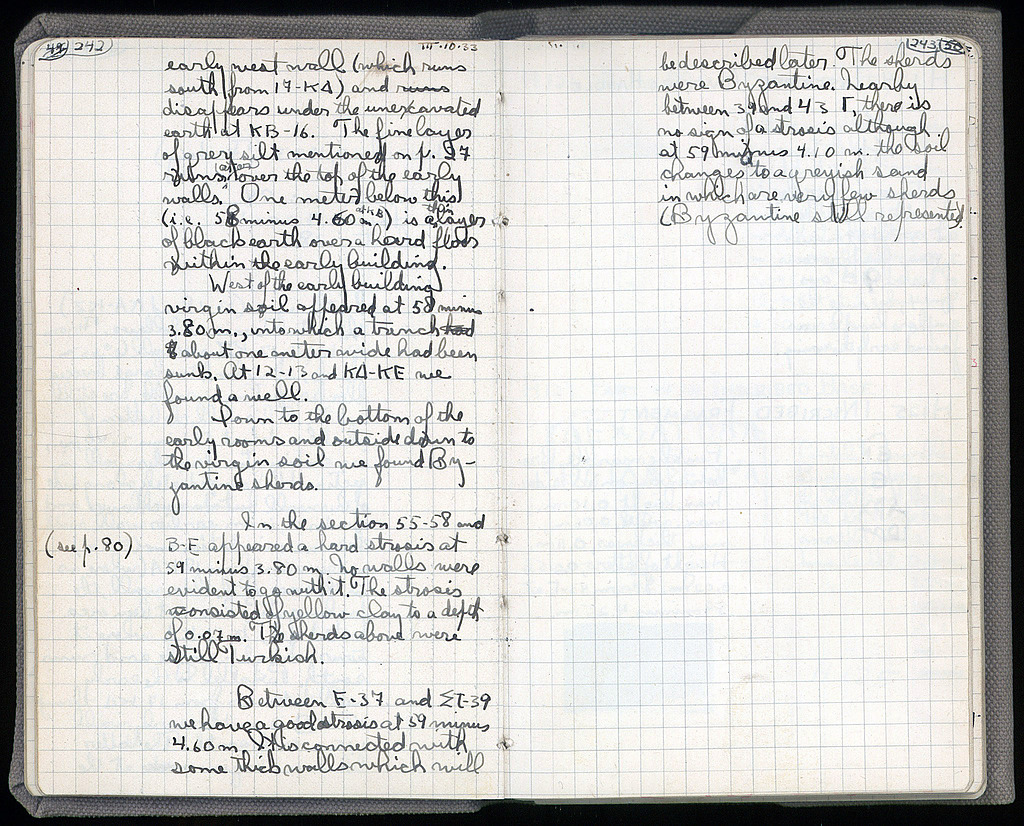 49 242
14.10.33
early west wall (which runs
south from 17-ΚΔ) and runs
disappears under the unexcavated
earth at ΚΒ-16. The fine layer
of grey silt mentioned on p. 27
runs over the top of the early
walls. One meter below this
(i.e. 58 minus 4.60 m) is a layer
of black earth over a hard floor
within the early building.
West of the early building
virgin soil appeared at 58 minus
3.80 m., into which a trench had
about one meter wide had been
sunk. At 12-13 and ΚΔ-ΚΕ we
found a well.
Down to the bottom of the
early rooms and outside down to
the virgin soil we found By-
zantine sherds.
In the section 55-58 and
(see p. 80)
B-E appeared a hard strosis at
59 minus 3.80 m. No walls were
evident to go with it. The strosis
consisted of yellow clay to a depth
of 0.07 m. The sherds above were
still Turkish.
Between E-37 and ΣΤ-39
we have a good strosis at 59 minus
4.60 m. It is connected with
some thick walls which will
243 50
be described later. The sherds
were Byzantine. Nearby
between 39 and 43 Γ, there is
no sign of a strosis although
at 59 minus 4.10 m. the soil
changes to a greyish sand
in which are very few sherds
(Byzantine still represented).